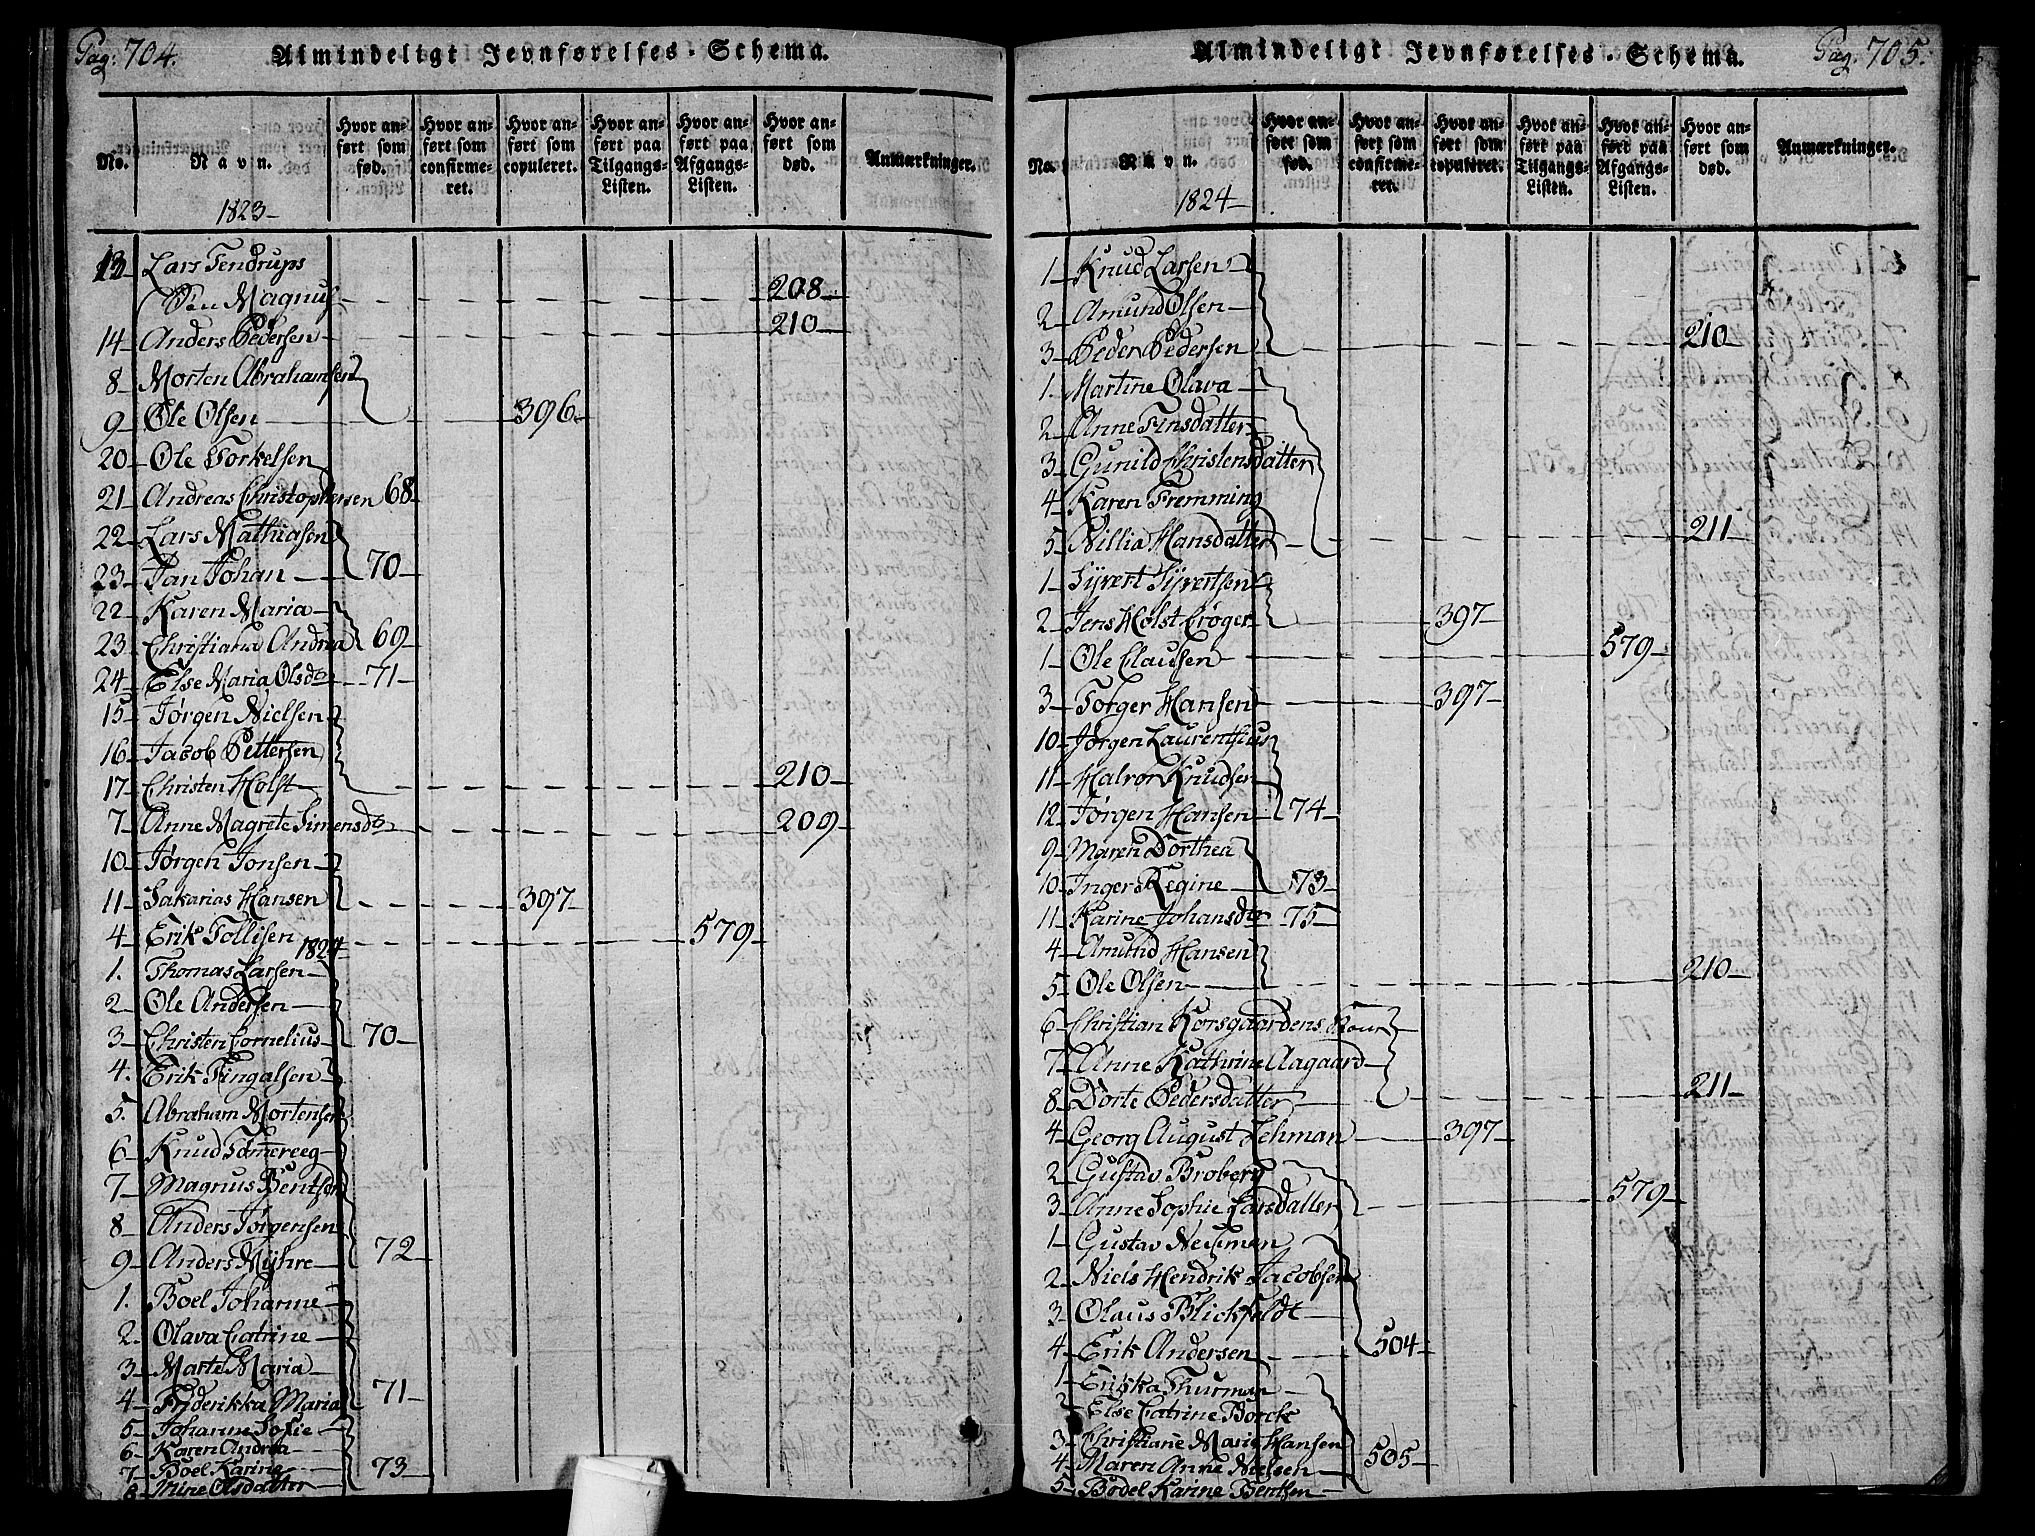 Pag: 704.
Almindeligt Jevnførelses-Schema.
No.
Navn.
Hvor anført som fød.
Hvor anført som confirmeret.
Hvor anført som copuleret.
Hvor anført paa Tilgangs-Listen.
Hvor anført paa Afgangs-Listen.
Hvor anført som død.
Anmærkninger.
1823-
13 Lars Tendrups
Søn Magnus 208
14 Anders Pedersen 210
8 Morten Abrahamsen
9 Ole Olsen 396
20 Ole Torkelsen
21 Andreas Christophersen 68
22 Lars Mathiasen
23 Jan Johan 70
22 Karen Maria
23 Christiana Andrea 69
24 Else Maria Olsdtr 71
15 Jørgen Nielsen
16 Jacob Pettersen
17 Christen Holst 210
7 Anne Magrete Simensdtr 209
10 Jørgen Jonsen
11 Sakarias Hansen 397
4 Erik Tollisen 579
1824
1. Thomas Larsen
2 Ole Andersen
3 Christen Cornelius 70
4. Erik Fingalsen
5. Abraham Mortensen
6 Knud Sømereeg
7 Magnus Bentsen
8 Anders Jørgensen
9 Anders Myhre 72
1. Boel Johanne
2. Olava Catrine
3 Marte Maria
4 Friderikka Maria 71
5 Johanne Sofie
6 Karen Andrea
7 Boel Karine 73
8 Nine Olsdatter
Pag. 705.
Almindeligt Jevnførelses-Schema.
No.
Navn.
Hvor anført som fød.
Hvor anført som confirmeret.
Hvor anført som copuleret.
Hvor anført paa Tilgangs-Listen.
Hvor anført paa Afgangs-Listen.
Hvor anført som død.
Anmærkninger.
1824
1 Knud Larsen
2 Amund Olsen
3 Peder Pedersen 210
1. Martine Olava
2 Anne Finsdatter
3 Gunild Christensdatter
4 Karen Fremming
5 Nillia Hansdatter 211
1 Syvert Syvertsen
2 Jens Holst Crøger 397
1 Ole Clausen 579
3 Torger Hansen 397
10 Jørgen Laurentsius
11 Halvor Knudsen
12 Jørgen Hansen 74
9 Maren Dorthea
10 Inger Regine 73
11 Karine Johansdtr 75
4 Amund Hansen
5 Ole Olsen 210
6 Christian Korsgaardens
7 Anne Kathrine Aagaard
8 Dorte Pedersdatter 211
4 Georg August Lehman 397
2 Gustav Broberg
3 Anne Sophie Larsdatter 579
1 Gustav Neuman
2 Niels Hendrik Jacobsen
3 Olaus Blickfeldt
4 Erik Andersen 504
1 Erikka Thurman
2 Else Catrine Borck
3 Christiane Marie Hansen
4 Maren Anne Nielsen 505
5 Bodel Karine Bentsen